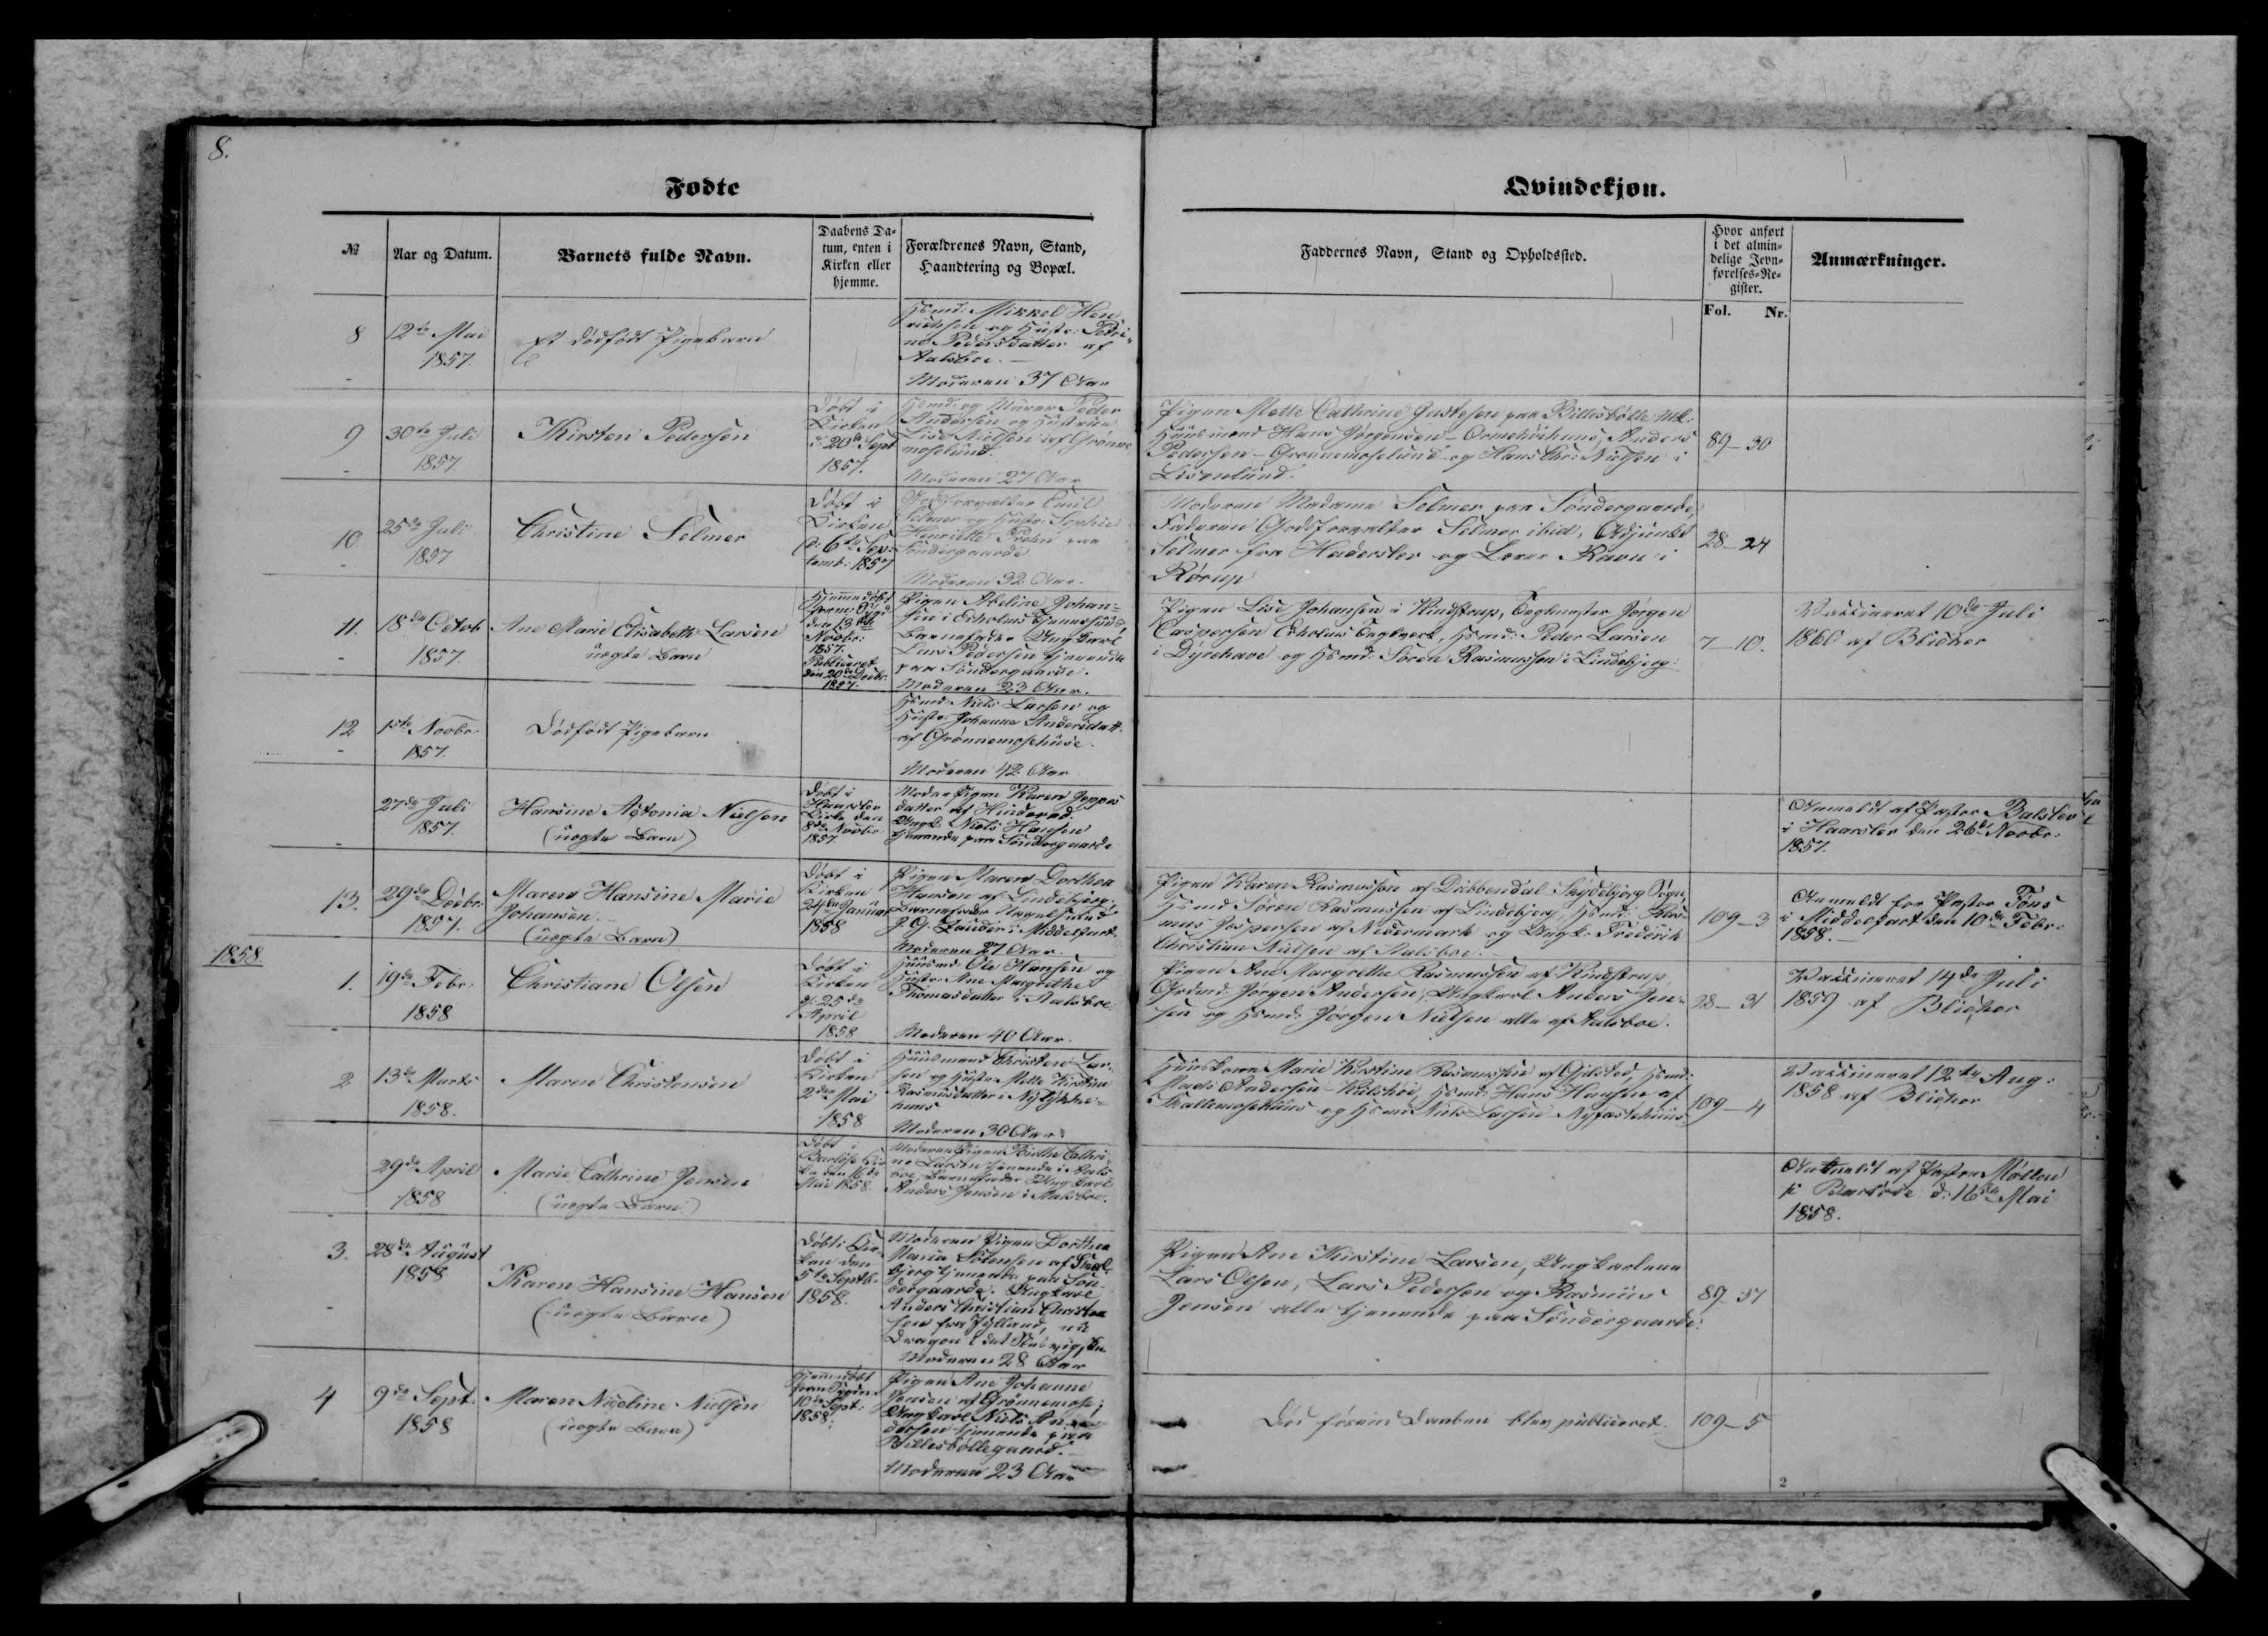 8.
Fødte
Qvindekjøn.
№
Aar og Datum.
Barnets fulde Navn.
Daabens Da-
tum, enten i
Kirken eller
hjemme.
Forældrenes Navn, Stand,
Haandtering og Bopæl.
Faddernes Navn, Stand og Opholdssted.
Hvor anført
i det almin-
delige Jevn-
førelses-Re-
gister.
Fol. Nr.
Anmærkninger.
8
12te Mai
1857.
Et dødfødt Pigebarn
Hsmd: Mikkel Hen
og Hustr: Petri-
ne Pedersdatter af
Aalsboe.
Moderen 37 Aar
9
30te Juli
1857.
Kirsten Pedersen
Døbt i
Kirken
d: 20de Sept
1857.
Hsmd: og Murer Peder
Andersen og Hustrue
Lise Nielsen af Grønne
moselund.
Moderen 27 Aar
Pigen Mette Cathrine Gustesen paa Billesbølle Mk:
Huusmand Hans Jørgensen - Ormehøihuus, Anders
Pedersen - Grønnemoselund og Hans Chr: Nielsen i
Lisenlund.
89-30
10.
25de Juli
1857
Christine Selmer
Døbt i
Kirken
d: 6te Sep-
temb: 1857
Godsforvalter Emil
Selmer og Hustr: Sophie
Henriette Prehn paa
Søndergaarde
Moderen 32 Aar.
Moderen Madame Selmer paa Søndergaarde,
Faderen Godsforvalter Selmer ibid, Adjunkt
Selmer fra Haderslev og Lærer Ravn i
Rørup
28-24
11.
18de Octob
1857.
Ane Marie Elisabeth Larsen
uægte Barn
Hjemmedøbt
den 13de
Novbr:
1857.
Publiceret
den 20de Decbr:
1857.
Pigen Abeline Johan-
sen i Erholms
Barnefader Ungkarl
Lars Pedersen tjenende
paa Søndergaarde.
Moderen 23 Aar.
Pigen Lise Johansen i Kindstrup, Teglmester Jørgen
Caspersen Erholms Teglværk, Hsmd: Peder Larsen
i Dyrehave og Hsmd: Søren Rasmussen i Lindebjerg
7-10.
Vaccineret 10de Juli
1860 af Blicher
12
1ste Novbr:
1857.
Dødfødt Pigebarn
Hsmd: Niels Larsen og
Hustr: Johanne Andersdatt:
af Grønnemosehuse.
Moderen 42 Aar
27de Juli
1857.
Hansine Antonia Nielsen
(uægte Barn)
Døbt i
Haarslev
Kirke den
8de Novbr:
1857
Moder Pigen Karen Jeppes
datter af
Ungk: Niels Hansen
tjenende paa Søndergaarde
Anmeldt af Pastor Balslev
i Haarslev den 26de Novbr:
1857.
13.
29de Decbr:
1857.
Maren Hansine Marie
Johansen.
(uægte Barn)
Døbt i
Kirken
24de Januar
1858
Pigen Maren Dorthea
Hansen af Lindebjerg,
Barnefader
i Middelfart.
Moderen 27 Aar.
Pigen Karen Rasmussen af Dybbendal i Skydebjerg Sogn,
Hsmd Søren Rasmussen af Lindebjerg, Hsmd: Ras-
mus Jespersen af Nedermark og Ungk: Frederik
Christian Nielsen af Aalsboe.
109-3
Anmeldt for Pastor Føns
i Middelfart den 10de Febr:
1858.
1858.
1.
19de Febr:
1858
Christiane Olsen
Døbt i
Kirken
d: 25de
April
1858
Huusmd Ole Hansen og
Hustr: Ane Margrethe
Thomasdatter i Aalsboe
Moderen 40 Aar.
Pigen Ane Margrethe Rasmussen af Kindstrup
Grdmd: Jørgen Andersen, Ungkarl Anders Jen-
sen og Hsmd: Jørgen Nielsen alle af Aalsboe.
28-31
Vaccineret 14de Juli
1859 af Blicher
2
13de Marts
1858.
Maren Christensen
Døbt i
Kirken
2den Mai
1858
Huusmand Christen Lar-
sen og Hustr: Mette Kirstine
Rasmusdatter i Nylykke-
huus
Moderen 30 Aar
Huuskone Marie Kirstine Rasmussen af Gjelsted, Hsmd:
Mads Andersen - Kulshøi, Hsmd: Hans Hansen af
Skallemosehuus og Hsmd: Niels Larsen Nyfæstehuus
109-4
Vaccineret 12te Aug:
1858 af Blicher
29de April
1858
Marie Cathrine Jensen
(uægte Barn)
Døbt i
Barløse Kir
ke den 16de
Mai 1858
Moderen Pigen Birthe Cathri-
ne Larsen tjenende i Aals-
boe, Barnefader Ungkarl
Anders Jensen i Aalsboe.
Anmeldt af Pastor Møller
i Barløse d: 16de Mai
1858.
3.
28de August
1858
Karen Hansine Hansen
(uægte Barn)
Døbt i Kir-
ken den
5te Septb:
1858.
Moderen Pigen Dorthea
Maria Sørensen af
tjenende paa Søn-
dergaarde. Ungkarl
Anders Christian Christen
sen fra Jylland, nu
Dragon
Moderen 28 Aar
Pigen Ane Kirstine Larsen, Ungkarlene
Lars Olsen, Lars Pedersen og Rasmus
Jensen alle tjenende paa Søndergaarde.
89-51
4
9de Sept:
1858
Maren Nicoline Nielsen
(uægte Barn)
Hjemmedøbt
10de Sept:
1858.
Pigen Ane Johanne
Jensen af Grønnemose;
Ungkarl Niels An-
dersen tjenende paa
Billesbøllegaard.
Moderen 23 Aar
Død førend Daaben blev publiceret.
109-5
2